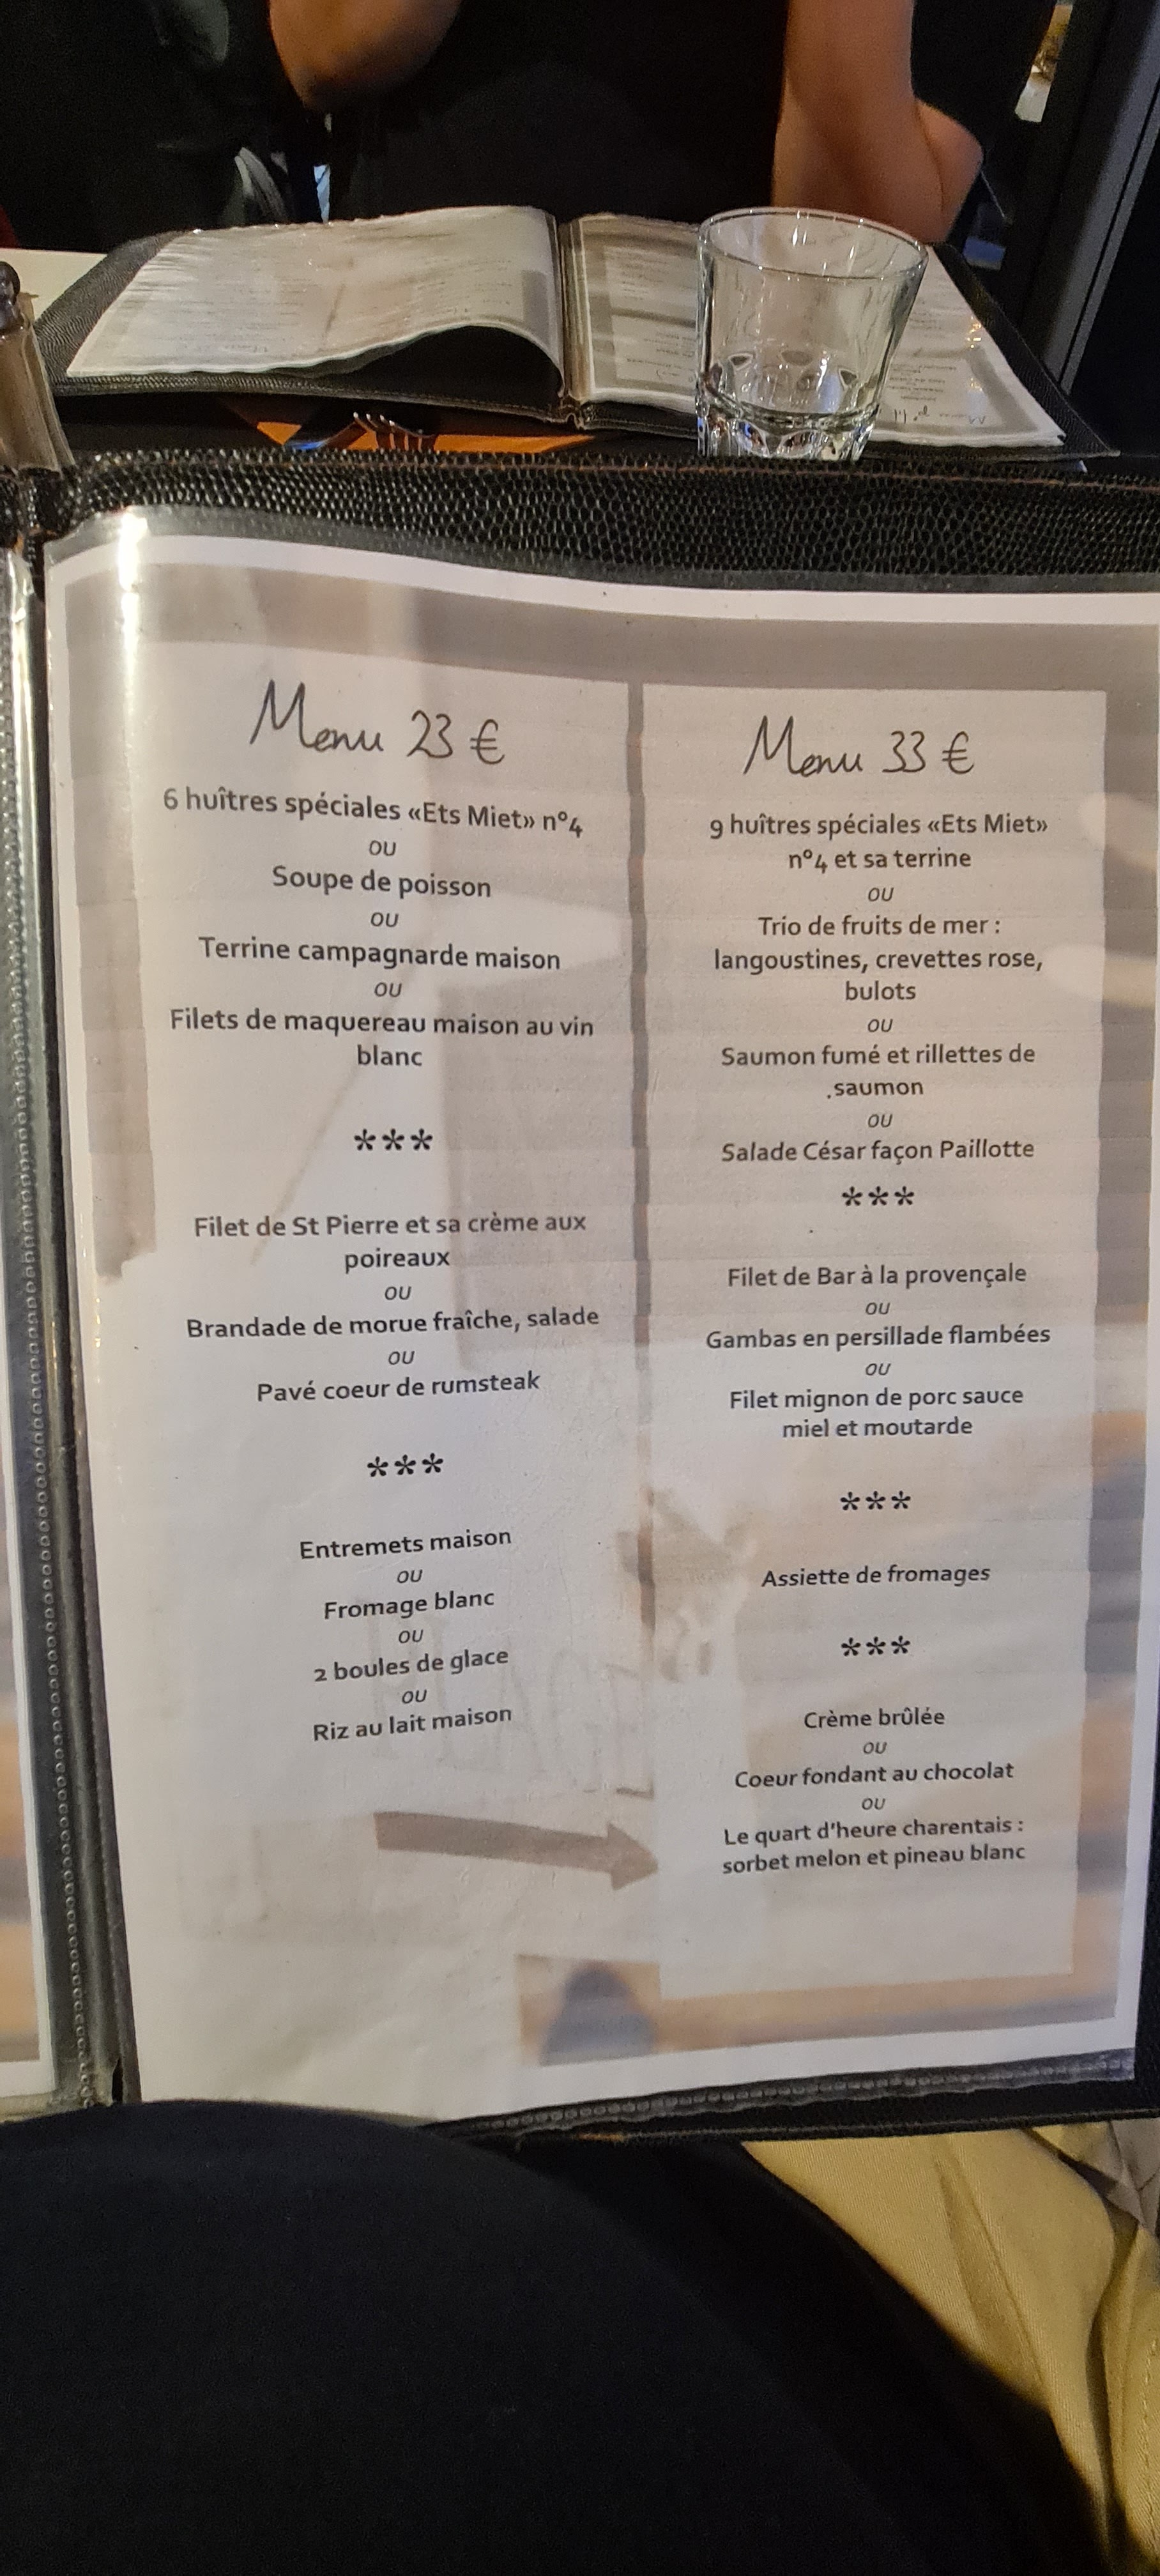 Menu 23 €
6 huîtres spéciales «Ets Miet» n°4
ou
Soupe de poisson
ou
Terrine campagnarde maison
ou
Filets de maquereau maison au vin
blanc
***
Filet de St Pierre et sa crème aux
poireaux
ou
Brandade de morue fraîche, salade
ou
Pavé coeur de rumsteak
***
Entremets maison
ou
Fromage blanc
ou
2 boules de glace
ou
Riz au lait maison
Menu 33 €
9 huîtres spéciales «Ets Miet»
n°4 et sa terrine
ou
Trio de fruits de mer :
langoustines, crevettes rose,
bulots
ou
Saumon fumé et rillettes de
.saumon
ou
Salade César façon Paillotte
***
Filet de Bar à la provençale
ou
Gambas en persillade flambées
ou
Filet mignon de porc sauce
miel et moutarde
***
Assiette de fromages
***
Crème brûlée
ou
Coeur fondant au chocolat
ou
Le quart d'heure charentais :
sorbet melon et pineau blanc